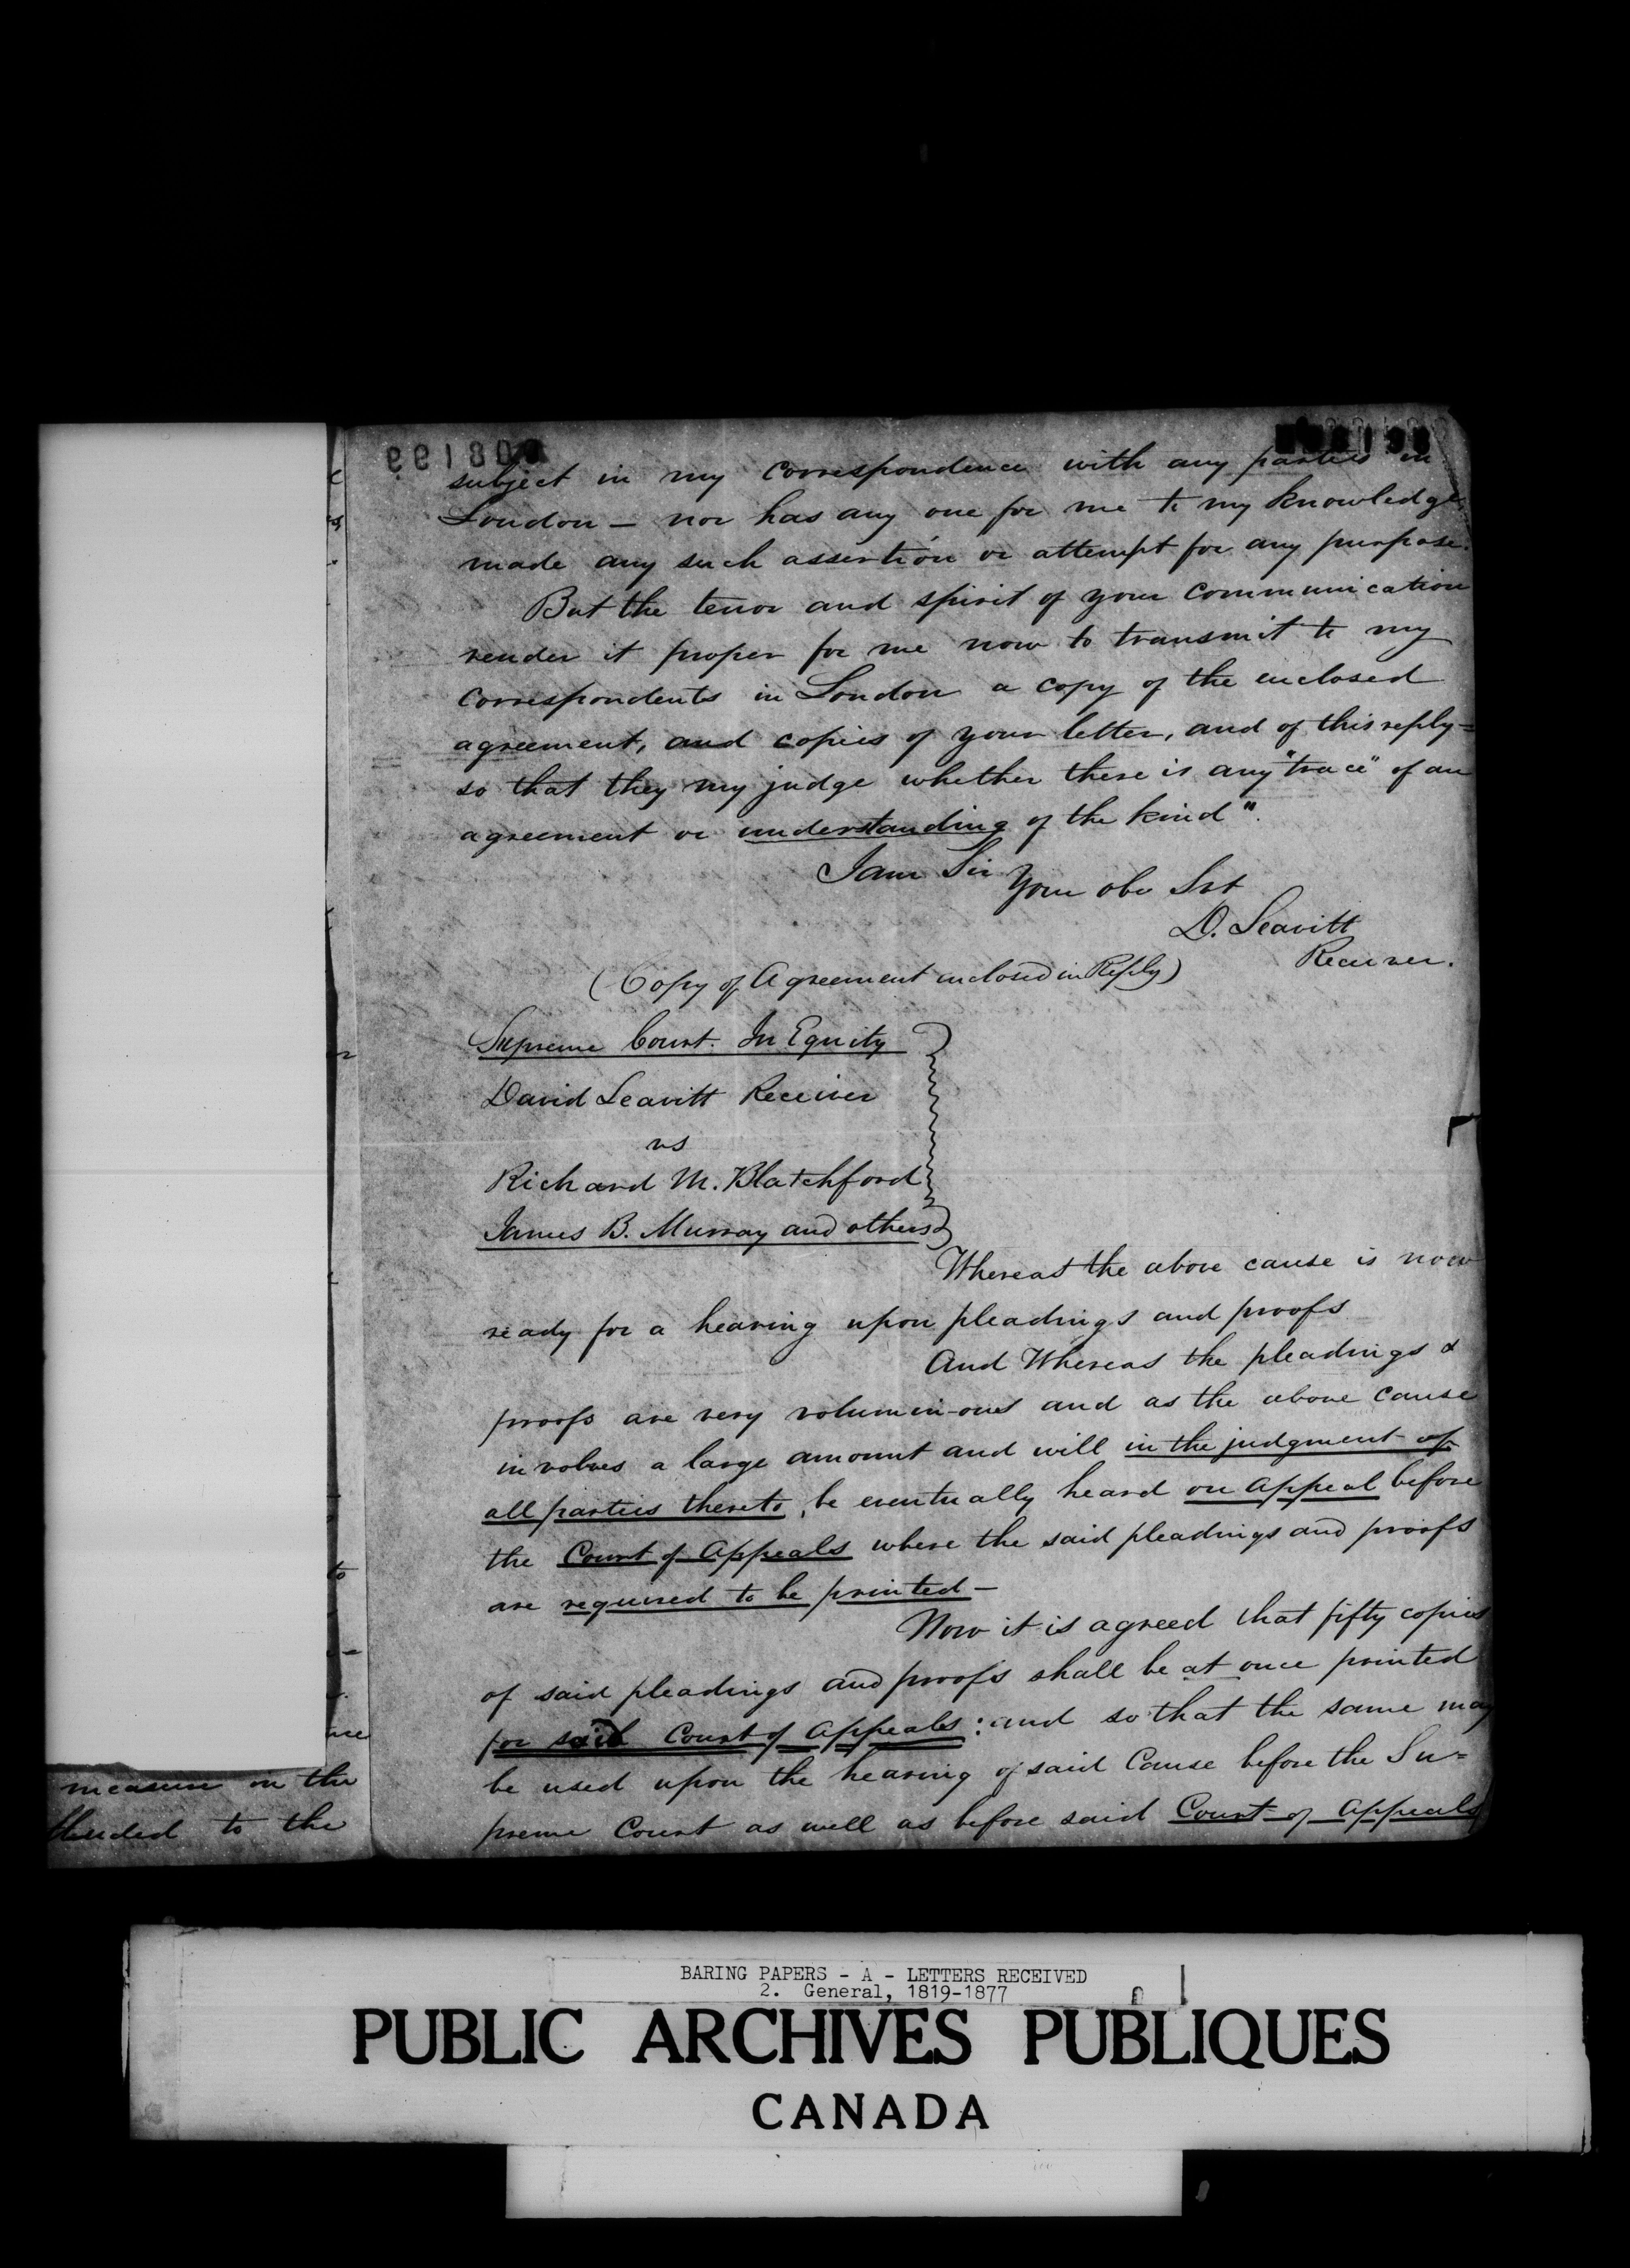 subject in my correspondence with any parties in
London – nor has any one for me to my knowledge
made any such assertion or attempt for any purpose.
But the tenor and spirit of your communication
render it proper for me now to transmit to my
correspondents in London a copy of the enclosed
agreement, and copies of your letter, and of this reply =
so that they my judge whether there is any "trace" of an
agreement or understanding of the kind".
I am Sir Your obe Svt
D. Leavitt
Receiver.
(Copy of Agreement enclosed in Reply)
Supreme Court. In Equity
David Leavitt Receiver
vs
Richard M. Blatchford
James B. Murray and others
Whereas the above cause is now
ready for a hearing upon pleadings and proofs
And Whereas the pleadings &
proofs are very volumin-ous and as the above cause
involves a large amount and will in the judgment of
all parties thereto, be eventually heard on appeal before
the Court of Appeals where the said pleadings and proofs
are required to be printed –
Now it is agreed that fifty copies
of said pleadings and proofs shall be at once printed
for said Court of Appeals: and so that the same may
be used upon the hearing of said Cause before the Su=
preme Court as well as before said Court of Appeals
measure on the
to the
BARING PAPERS - A - LETTERS RECEIVED
2. General, 1819-1877
PUBLIC ARCHIVES PUBLIQUES
CANADA